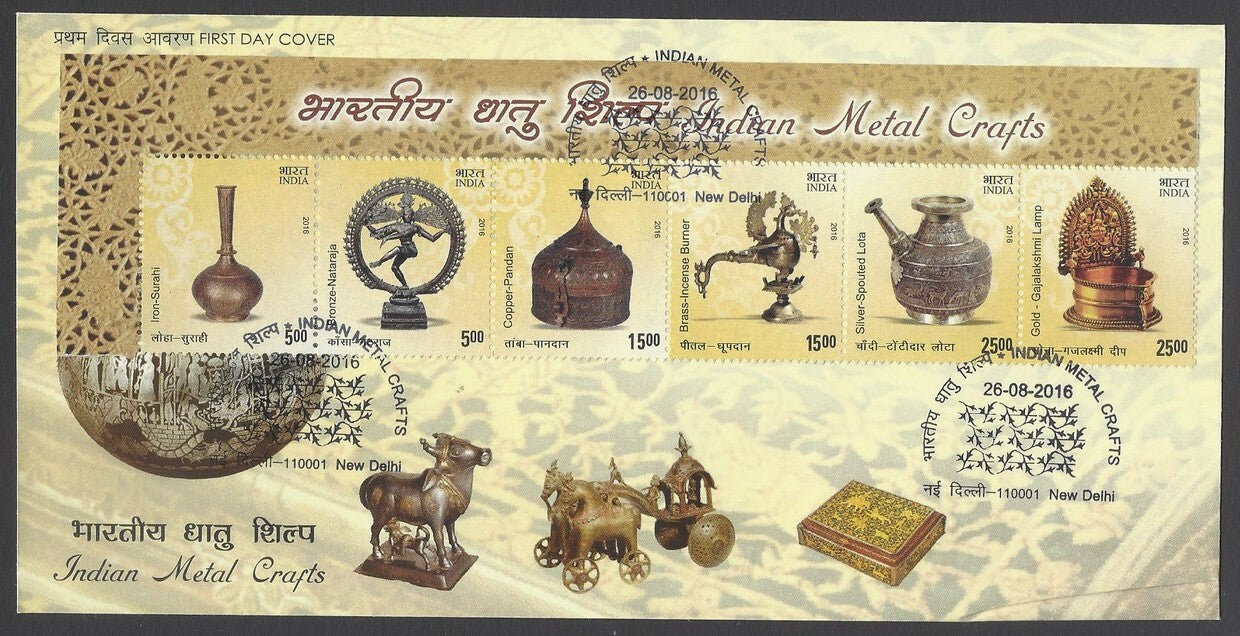 प्रथम दिवस आवरण FIRST DAY COVER
भारतीय धातु शिल्प Indian Metal Crafts
भारतीय धातु शिल्प ★ INDIAN METAL CRAFTS
26-08-2016
नई दिल्ली-110001 New Delhi
भारत
INDIA
2016
Iron-Surahi
लोहा-सुराही
5.00
भारत
INDIA
2016
Bronze-Nataraja
काँसा
राज
5.00
भारत
INDIA
2016
Copper-Pandan
तांबा-पानदान
15.00
2016
Brass-Incense Burner
पीतल-धूपदान
15.00
भारत
INDIA
2016
Silver-Spouted Lota
चाँदी-टोंटीदार लोटा
25.00
भारत
INDIA
2016
Gold - Gajalakshmi Lamp
गजलक्ष्मी दीप
25.00
शिल्प ★ INDIAN METAL CRAFTS
26-08-2016
दिल्ली-110001 New Delhi
भारतीय धातु शिल्प ★ INDIAN METAL CRAFTS
26-08-2016
नई दिल्ली-110001 New Delhi
भारतीय धातु शिल्प
Indian Metal Crafts